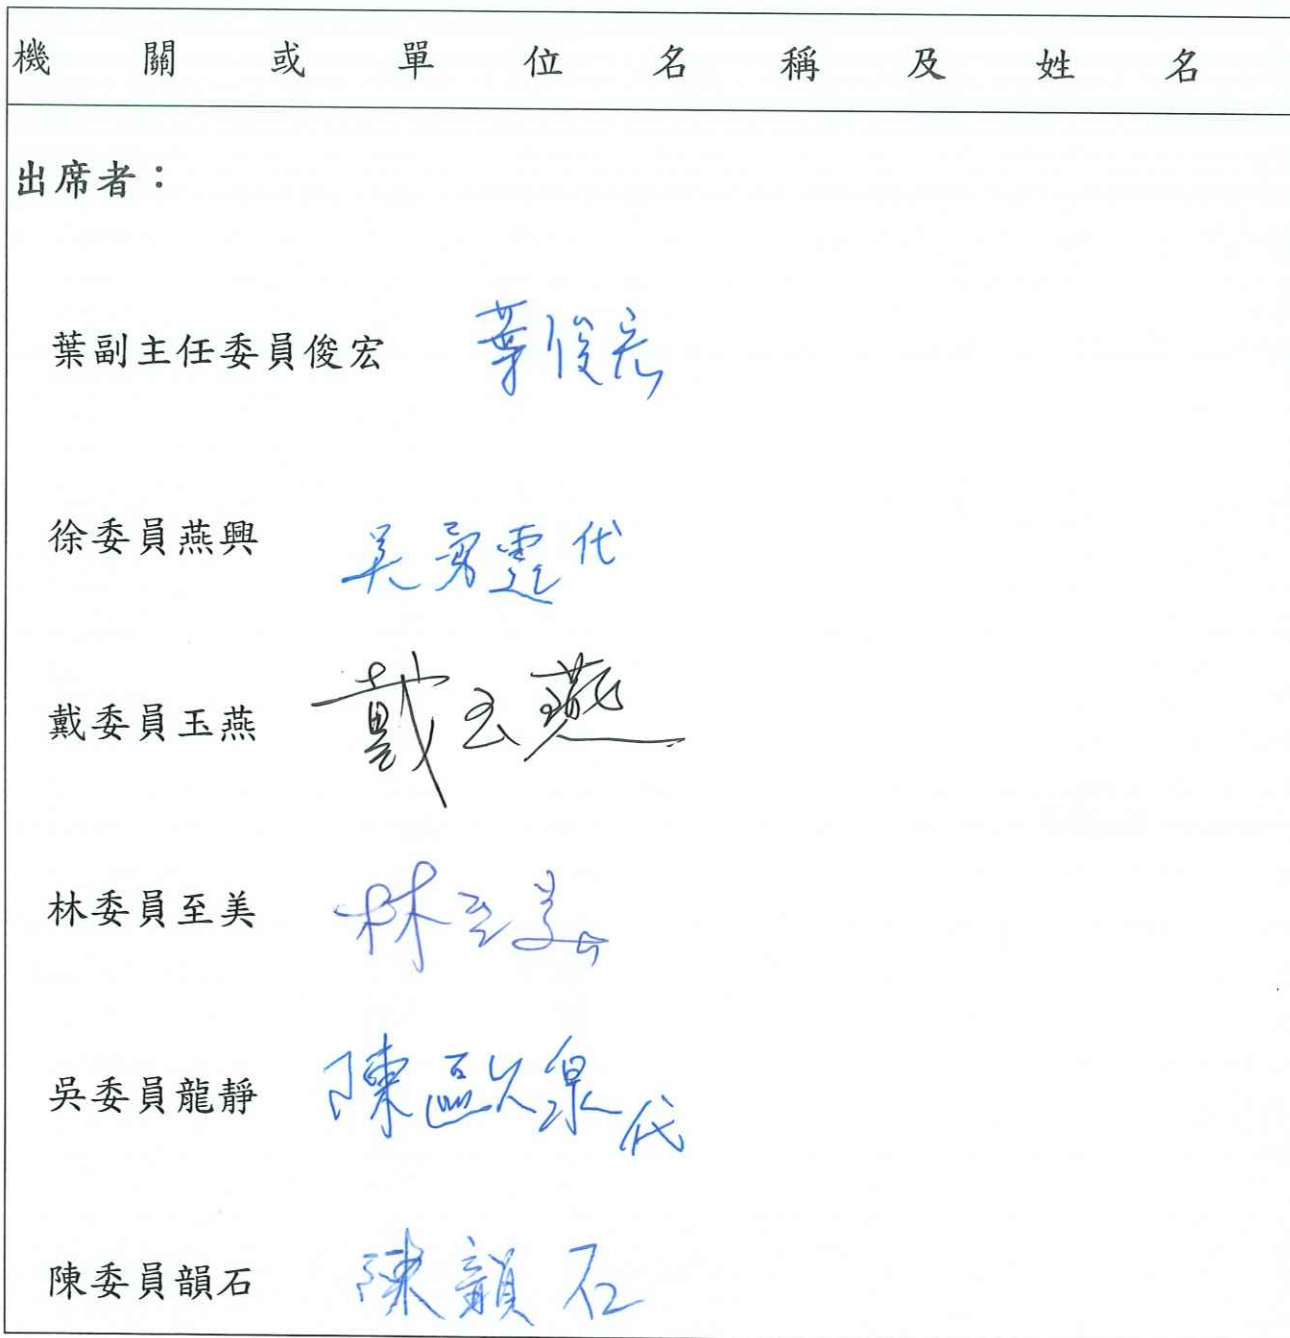 機關或單位名稱及姓名
出席者：
葉副主任委員俊宏 葉俊宏
徐委員燕興 吳勇霆代
戴委員玉燕 戴玉燕
林委員至美 林至美
吳委員龍靜 陳歐泉代
陳委員韻石 陳韻石